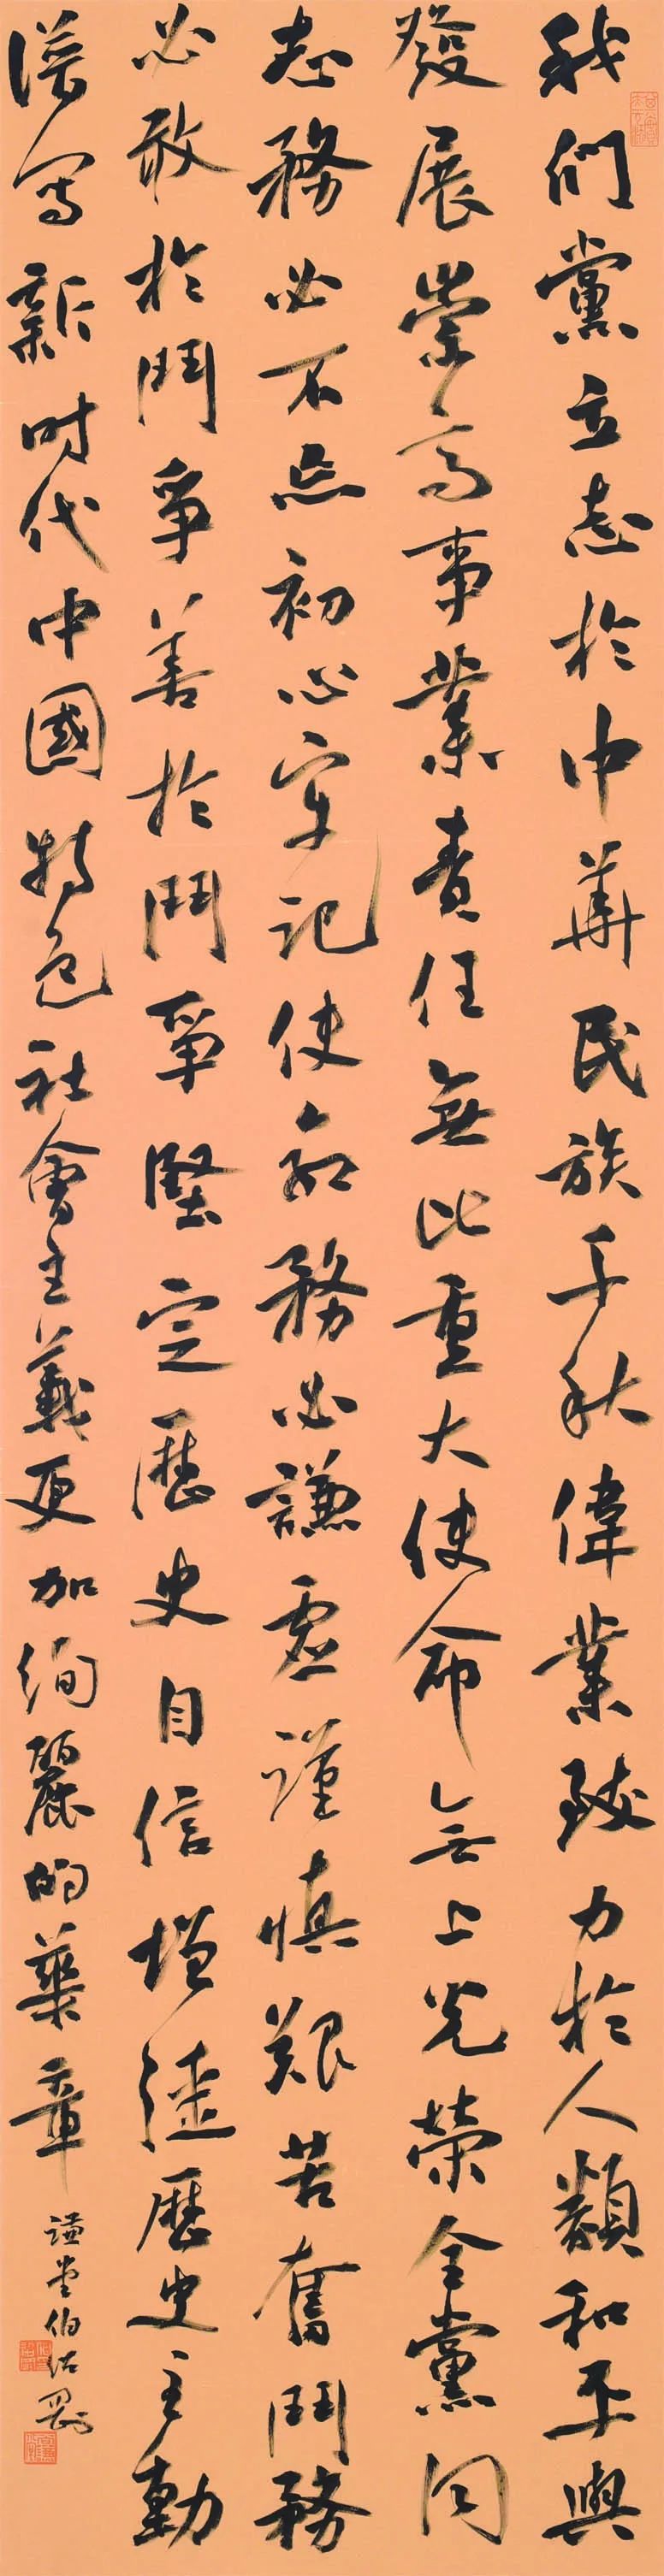 我們黨立志於中華民族千秋偉業致力於人類和平與
發展崇高事業責任無比重大使命無上光榮全黨同
志務必不忘初心牢記使命務必謙虛謹慎艱苦奮鬥務
必敢於鬥爭善於鬥爭堅定歷史自信增强歷史主動
譜寫新时代中國特色社會主義更加絢麗的華章
謙堂伯紹剛